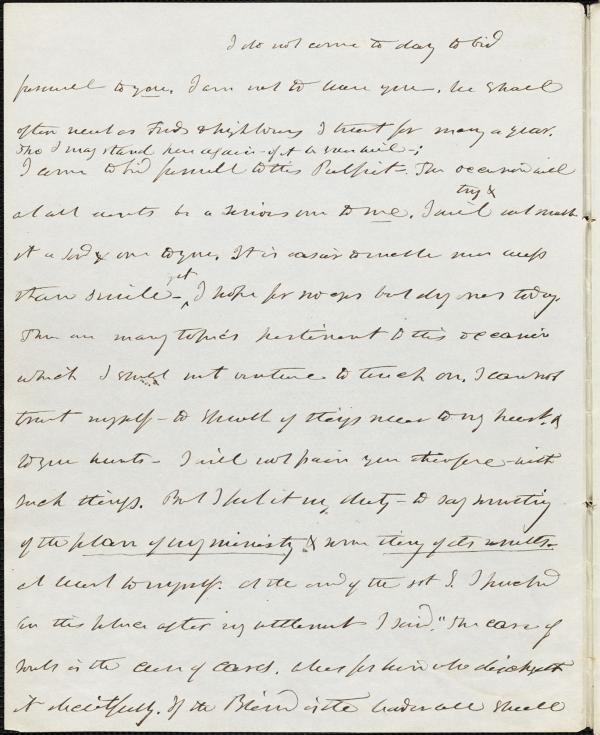 I do not come to day to bid
farewell to you. I am not to leave you. We shall
often meet as Frds & neighbours I trust for many a year.
Tho I may stand here again – if it be never while –;
I come to bid farewell to this Pulpit – The occasion will
try &
at all events be a serious one to me. I will not make
it a sad one to you. It is easier to make men weep
than smile – yet I hope for no eyes but dry ones today.
There are many topics pertinent to this occasion
which I shall not venture to touch on. I cannot
trust myself – to speak of things near to my heart. &
to your hearts – I will not pain you therefore with
such things. But I feel it my duty – to say something
of the plan of my ministry & some thing of its results –
at least to myself. At the end of the 1st S. I preached
in this place after my settlement I said. "The care of
souls is the care of cares. alas for him who dischargeth
it deceitfully. If the Blind is the leader all shall